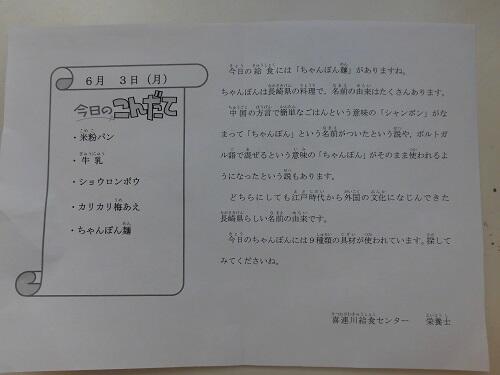 6月 3日(月)
今日のこんだて
・米粉パン
・牛乳
・ショウロンポウ
・カリカリ梅あえ
・ちゃんぽん麺
今日の給食には「ちゃんぽん麺」がありますね。
ちゃんぽんは長崎県の料理で、名前の由来はたくさんあります。
中国の方言で簡単なごはんという意味の「シャンポン」がな
まって「ちゃんぽん」という名前がついたという説や、ポルトガ
ル語で混ぜるという意味の「ちゃんぽん」がそのまま使われるよ
うになったという説もあります。
どちらにしても江戸時代から外国の文化になじんできた
長崎県らしい名前の由来です。
今日のちゃんぽんには9種類の具材が使われています。探して
みてくださいね。
喜連川給食センター 栄養士